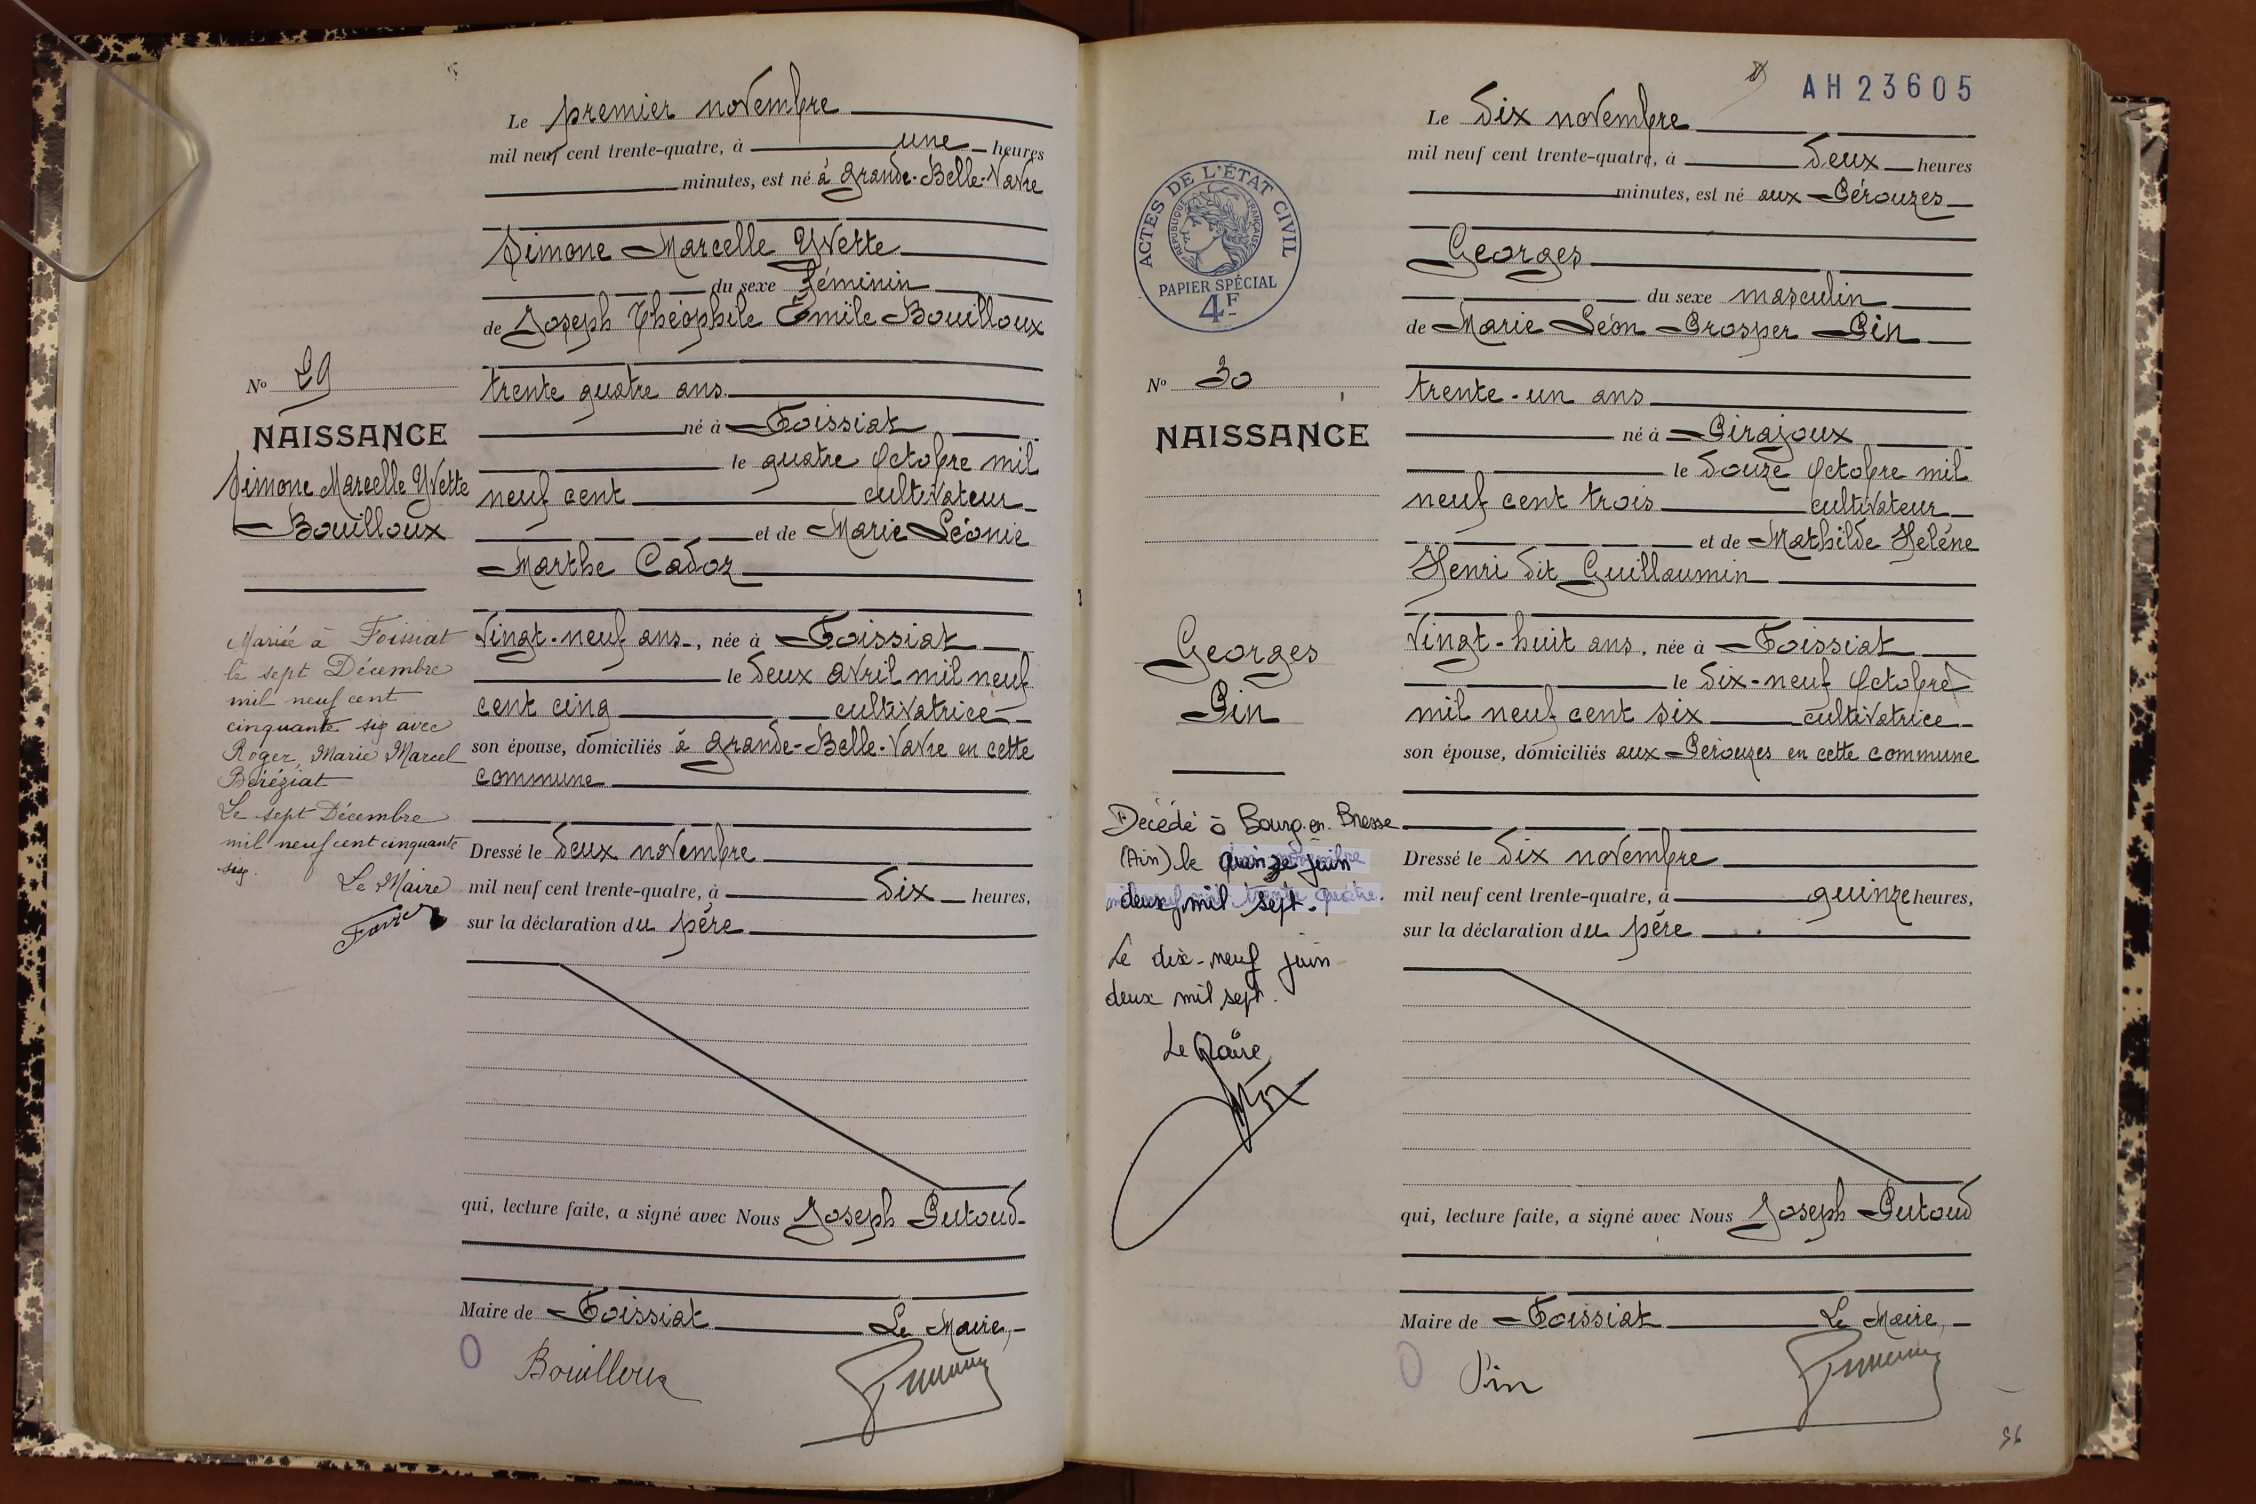 Le premier novembre
mil neuf cent trente-quatre, à une heures
minutes, est né à Grande-Belle-Vavre
Simone Marcelle Yvette
du sexe féminin
de Joseph Théophile Emile Bouilloux
trente quatre ans
né à Foissiat
le quatre Octobre mil
neuf cent cultivateur
et de Marie Léonie
Marthe Cadoz
Vingt-neuf ans, née à Foissiat
le deux avril mil neuf
cent cinq cultivatrice
son épouse, domiciliés à Grande-Belle-Vavre en cette
commune
Dressé le deux novembre
mil neuf cent trente-quatre, à dix heures,
sur la déclaration du père
qui, lecture faite, a signé avec Nous Joseph Putoud
Maire de Foissiat Le Maire,
Bouilloux
No 29
NAISSANCE
Simone Marcelle Yvette
Bouilloux
Mariée à Foissiat
le sept Décembre
mil neuf cent
cinquante six avec
Roger, Marie Marcel
Béréziat
Le sept Décembre
mil neuf cent cinquante
six.
Le Maire
AH 23605
Le dix novembre
mil neuf cent trente-quatre, à deux heures
minutes, est né aux Pérouzes
Georges
du sexe masculin
de Marie Léon Prosper Pin
trente-un ans
né à Pirajoux
le douze Octobre mil
neuf cent trois cultivateur
et de Mathilde Heléne
Henri dit Guillaumin
Vingt-huit ans, née à Foissiat
le dix-neuf Octobre
mil neuf cent six cultivatrice
son épouse, domiciliés aux Pérouzes en cette commune
Dressé le dix novembre
mil neuf cent trente-quatre, à quinze heures,
sur la déclaration du père
qui, lecture faite, a signé avec Nous Joseph Putoud
Maire de Foissiat Le Maire,
Pin
ACTES DE L'ÉTAT CIVIL
RÉPUBLIQUE FRANÇAISE
PAPIER SPÉCIAL
4F
No 30
NAISSANCE
Georges
Pin
Décédé à Bourg-en-Bresse
(Ain) le quinze juin
deux mil sept.
Le dix-neuf juin
deux mil sept.
Le Maire
56